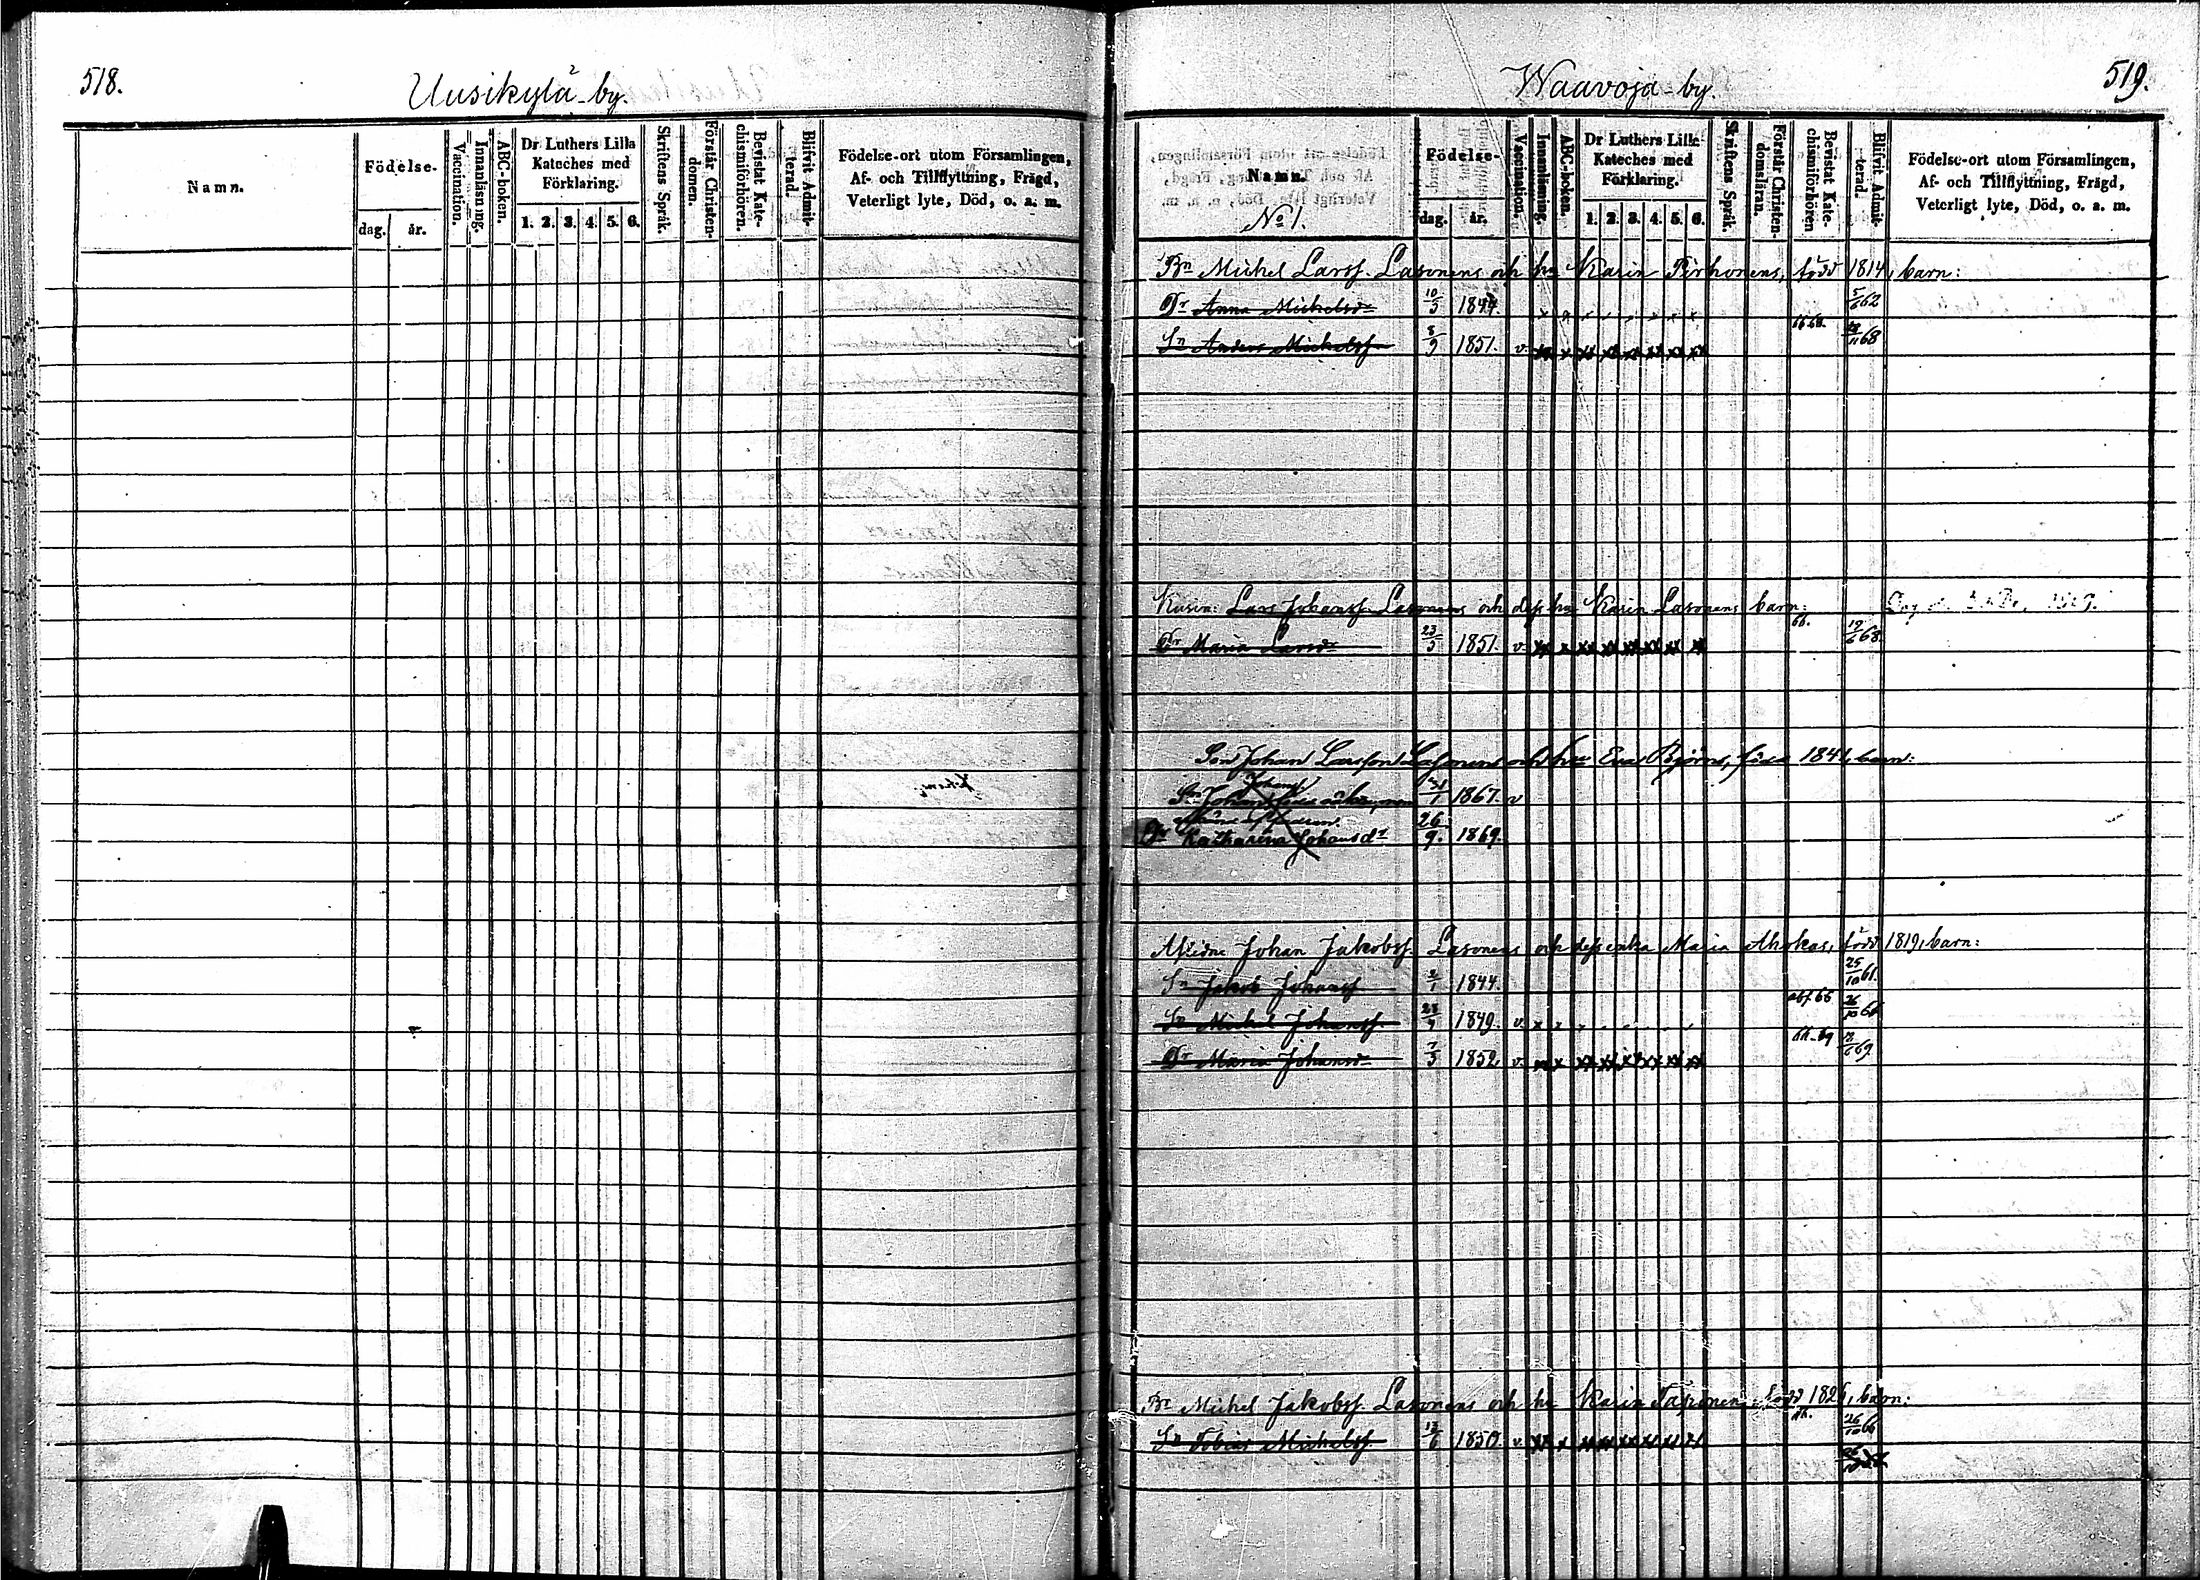 518.
Uusikylä by.
Namn.
Födelse.
dag. år.
Vaccination.
Innanläsning.
ABC-boken.
Dr Luthers Lilla Kateches med Förklaring.
1. 2. 3. 4. 5. 6.
Skriftens Språk.
Förstår Christen-domen.
Bevistat Kate-chismiförhören.
Blifvit Admit-terad.
Födelse-ort utom Församlingen,
Af- och Tillflyttning, Frägd,
Veterligt lyte, Död, o. a. m.
Waavoja by.
519.
Namn.
No 1.
Födelse-
dag. år.
Vaccination.
Innanläsning.
ABC-boken.
Dr Luthers Lilla Kateches med Förklaring.
1. 2. 3. 4. 5. 6.
Skriftens Språk.
Förstår Christen-domsläran.
Bevistat Kate-chismiförhören
Blifvit Admit-terad.
Födelse-ort utom Församlingen,
Af- och Tillflyttning, Frägd,
Veterligt lyte, Död, o. a. m.
Bn Michel Larsf. Lasonens och hu Karin Pirhonens, född 1814, barn:
Dr Anna Michelsdr 10/3 1844. 5/6 62
Sn Anders Michelsf 8/9 1851. v. 11 68
Kusin: Lars Johansf. Lasonens och dess hu Karin Lasonens barn:
Dr Maria Larsdr 23/3 1851. v. 66. 19/6 68
Son Johan Larsson Lasonens och hu Eva Björns, född 1841, barn:
Sn Johan 1867. v
Dr Katharina Johansdr 26/9. 1869.
Afledne Johan Jakobsf. Lasonens och dess enka Maria Ahokas, född 1819, barn:
Sn Jakob Johansf 2/1 1844. 25/10 61.
Sn Michel Johansf. 28/9 1849. v. abs. 66 26/10 66
Dr Maria Johansdr 7/3 1852 v. 69
Br Michel Jakobsf. Lasonens och hu Karin Taponen född 1826, barn:
Sn Tobias Michelsf 13/6 1850 v. 26/10 66